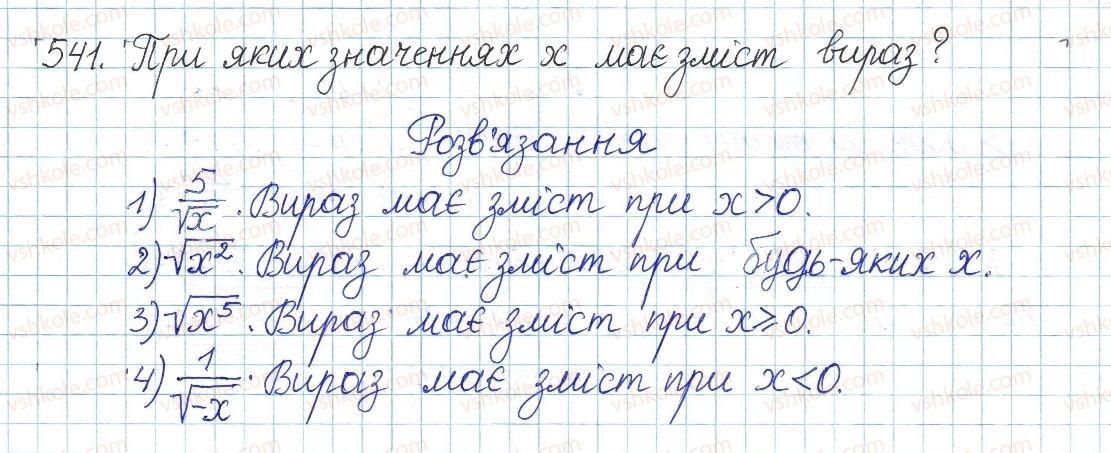 541. При яких значеннях x має зміст вираз?
Розв'язання
1) 5/√x. Вираз має зміст при x>0.
2) √x². Вираз має зміст при будь-яких x.
3) √x⁵. Вираз має зміст при x≥0.
4) 1/√-x. Вираз має зміст при x<0.